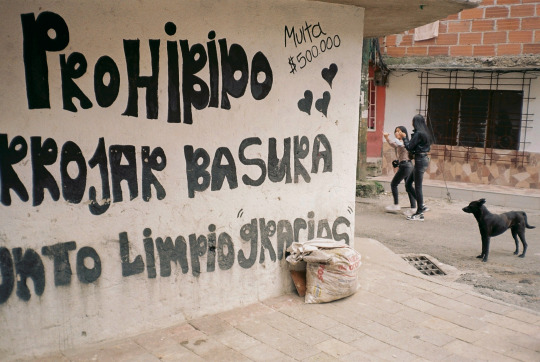 PROHIBIDO
Multa
$500.000
RROJAR BASURA
NTO LIMPIO "gracias"